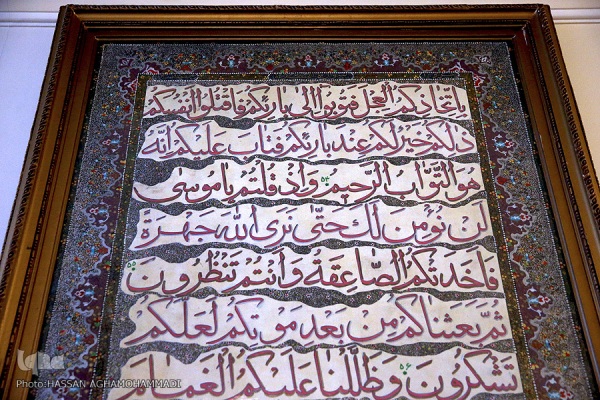 بِاتِّخَاذِكُمُ الْعِجْلَ فَتُوبُوا إِلَىٰ بَارِئِكُمْ فَاقْتُلُوا أَنْفُسَكُمْ
ذَٰلِكُمْ خَيْرٌ لَكُمْ عِنْدَ بَارِئِكُمْ فَتَابَ عَلَيْكُمْ إِنَّهُ
هُوَ التَّوَّابُ الرَّحِيمُ ۵۴ وَإِذْ قُلْتُمْ يَا مُوسَىٰ
لَنْ نُؤْمِنَ لَكَ حَتَّىٰ نَرَى اللَّهَ جَهْرَةً
فَأَخَذَتْكُمُ الصَّاعِقَةُ وَأَنْتُمْ تَنْظُرُونَ ۵۵
ثُمَّ بَعَثْنَاكُمْ مِنْ بَعْدِ مَوْتِكُمْ لَعَلَّكُمْ
تَشْكُرُونَ ۵۶ وَظَلَّلْنَا عَلَيْكُمُ الْغَمَامَ
iqna
Photo:HASSAN AGHAMOHAMMADI